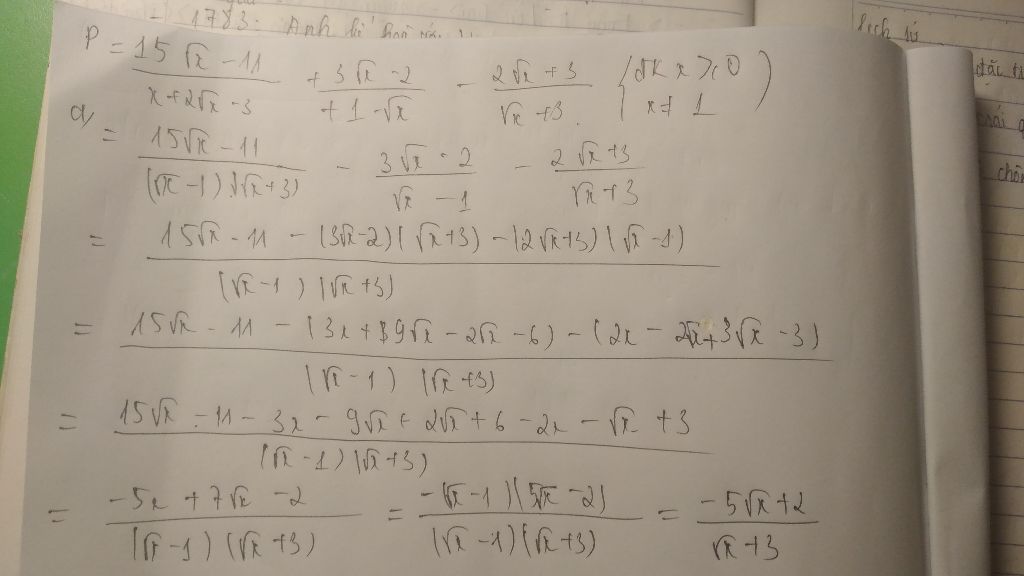 1783: Anh
P = (15√x - 11)/(x + 2√x - 3) + (3√x - 2)/(+1 - √x) - (2√x + 3)/(√x + 3) (ĐK x ≥ 0 x ≠ 1)
a, = (15√x - 11)/((√x - 1)(√x + 3)) - (3√x - 2)/(√x - 1) - (2√x + 3)/(√x + 3)
= (15√x - 11 - (3√x - 2)(√x + 3) - (2√x + 3)(√x - 1))/((√x - 1)(√x + 3))
= (15√x - 11 - (3x + 9√x - 2√x - 6) - (2x - 2√x + 3√x - 3))/((√x - 1)(√x + 3))
= (15√x - 11 - 3x - 9√x + 2√x + 6 - 2x - √x + 3)/((√x - 1)(√x + 3))
= (-5x + 7√x - 2)/((√x - 1)(√x + 3)) = (-(√x - 1)(5√x - 2))/((√x - 1)(√x + 3)) = (-5√x + 2)/(√x + 3)
lịch sử